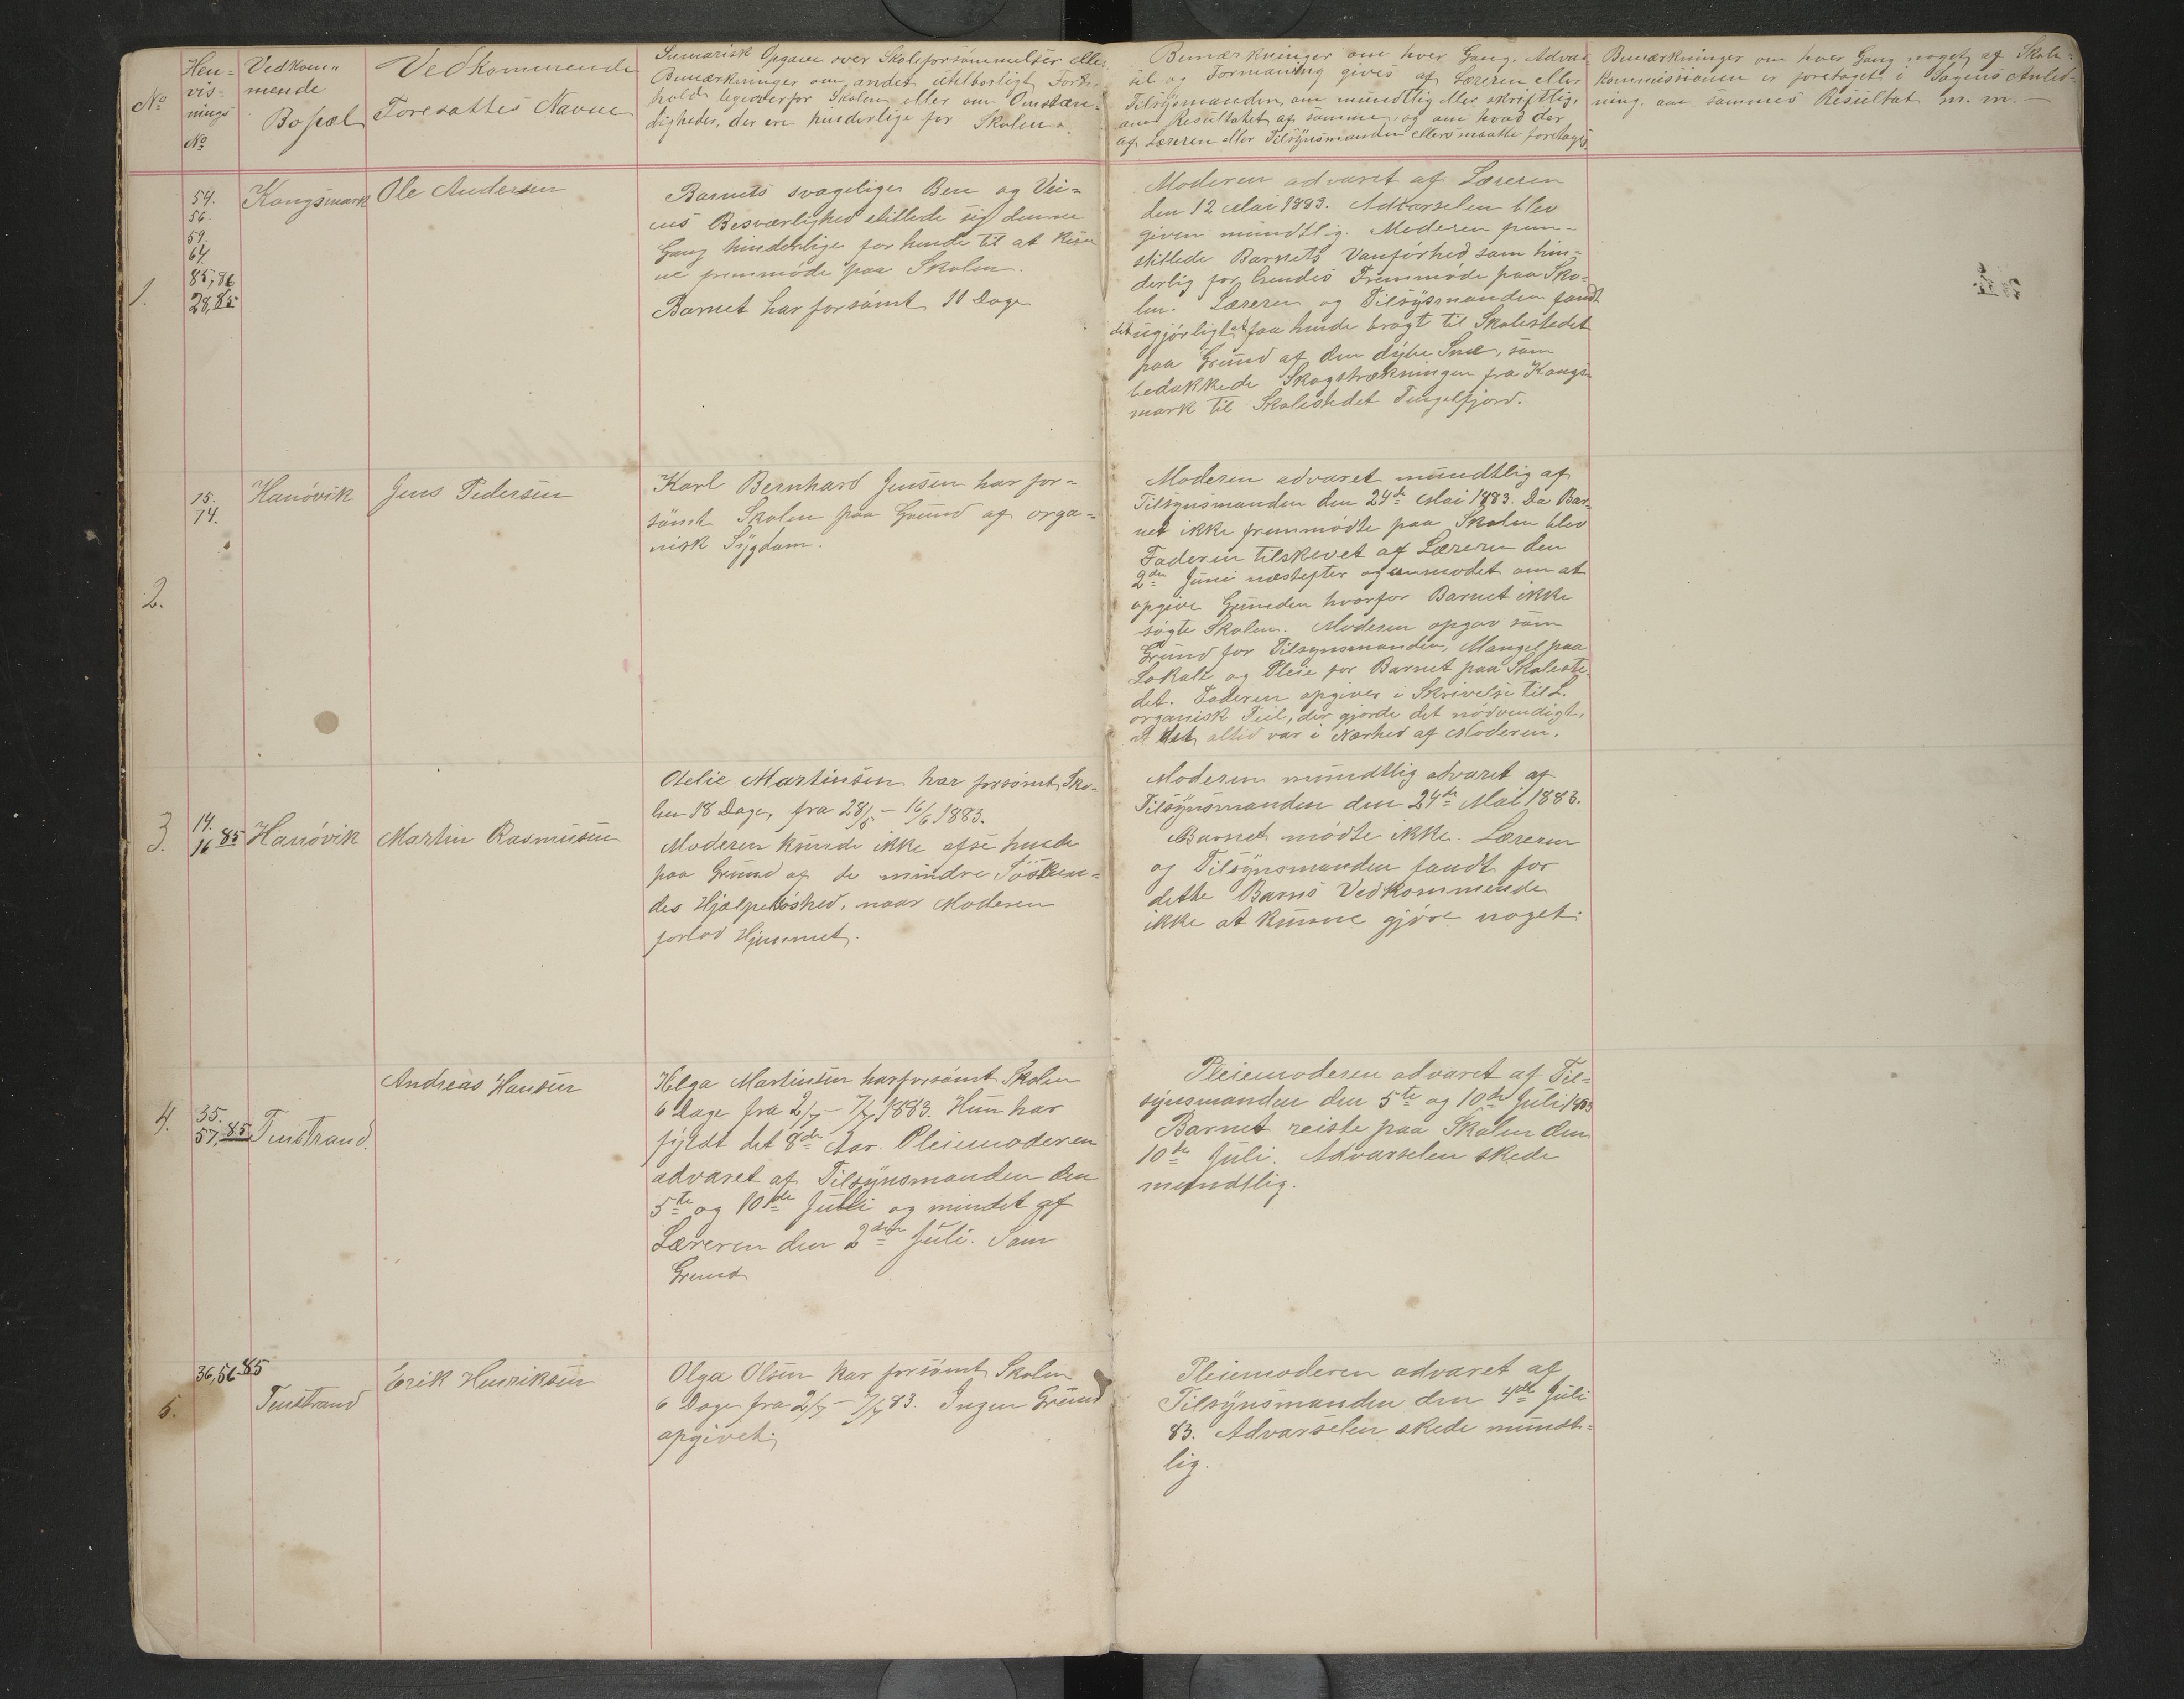 No
Hen=
vis=
nings
No
Vedkom=
mende
Bopæl
Vedkommende
Foresattes Navne
Sumarisk Opgave over Skoleforsömmelser eller
Bemærkninger om andet utilbörligt For=
hold ligeoverfor Skolen eller om Omstæn=
digheder, der ere hinderlige for Skolen.
Bemærkninger om hver Gang, Advar
sel og Formaning gives af Læreren eller
Tilsynsmanden, om mundtlig eller skriftlig,
om Resultatet af samme, og om hvad der
af Læreren eller Tilsynsmanden ellers maatte foretages.
Bemærkninger om hver Gang noget af Skole=
kommissionen er foretaget i Sagens Anled=
ning, om sammes Resultat m. m. —
1.
54.
56.
59.
64.
85,86
28,85
Kongsmark
Ole Andersen
Barnets svagelige Ben og Vei=
ens Besværlighed stillede sig denne
Gang hinderlige for hende til at kun
ne fremmöde paa Skolen.
Barnet har forsömt 11 Dage
Moderen advaret af Læreren
den 12 Mai 1883. Advarselen blev
given mundtlig. Moderen frem=
stillede Barnets Vanförhed som hin=
derlig for hendes Fremmöde paa Sko=
len. Læreren og Tilsysmanden fandt
det ugjörligt at faa hende bragt til Skolestedet
paa Grund af den dybe Sne, som
bedækkede Skogstrækningen fra Kongs
mark til Skolestedet Tengelfjord.
2.
15.
74.
Hanövik
Jens Pedersen
Karl Bernhard Jensen har for=
sömt Skolen paa Grund af orga=
nisk Sygdom.
Moderen advaret mundtlig af
Tilsynsmanden den 24de Mai 1883. Da Bar
net ikke fremmödte paa Skolen blev
Faderen tilskevet af Læreren den
2den Juni næstefter og anmodet om at
opgive Grunden hvorfor Barnet ikke
sögte Skolen. Moderen opgav som
Grund for Tilsynsmanden, Mangel paa
Lokale og Pleie for Barnet paa Skoleste
det. Faderen opgiver i Skrivelse til L.
organisk Feil, der gjorde det nödvendigt,
at det altid var i Nærhed af Moderen.
3.
14.
16 85
Hanövik
Martin Rasmusen
Otelie Martinsen har forsömt Sko=
len 18 Dage, fra 28/5 – 16/6 1883.
Moderen kunde ikke afse hende
paa Grund af de mindre Sösken=
des Hjælpelöshed, naar Moderen
forlod Hjemmet.
Moderen mundtlig advaret af
Tilsynsmanden den 24de Mai 1883.
Barnet mödte ikke. Læreren
og Tilsynsmanden fandt for
dette Barns Vedkommende
ikke at kunne gjöre noget.
4.
35.
57, 85
Tenstrand.
Andreas Hansen
Helga Martinsen har forsömt Skolen
6 Dage fra 2/7 – 7/7 1883. Hun har
fyldt det 8de Aar. Pleiemoderen
advaret af Tilsynsmanden den
5te og 10de Juli og mindet af
Læreren den 2den Juli. Som
Grund
Pleiemoderen advaret af Til=
synsmanden den 5te og 10de Juli 1883
Barnet reiste paa Skolen den
10de Juli. Advarselen skede
mundtlig.
5.
36,56 85
Tenstrand
Erik Henriksen
Olga Olsen har forsömt Skolen
6 Dage fra 2/7 – 7/7 83. Ingen Grund
opgivet.
Pleiemoderen advaret af
Tilsynsmanden den 4de Juli
83. Advarselen skede mundt=
lig.